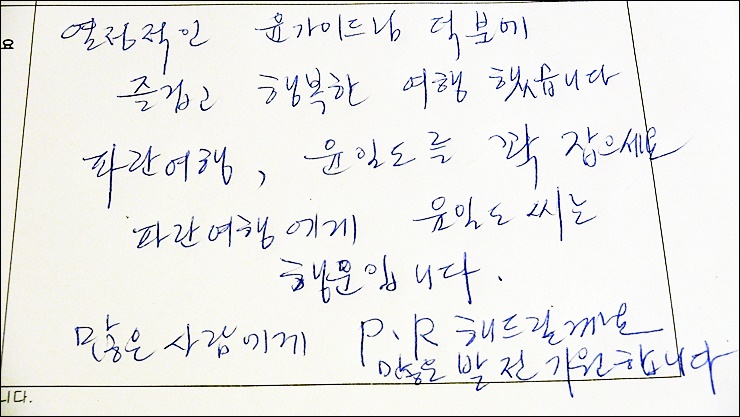 요
열정적인 윤가이드님 덕분에
즐겁고 행복한 여행 했습니다
파란여행, 윤일도를 꽉 잡으세요
파란여행에게 윤일도 씨는
행운입니다.
많은 사람에게 P.R 해드릴게요
많은 발전 기원합니다
니다.